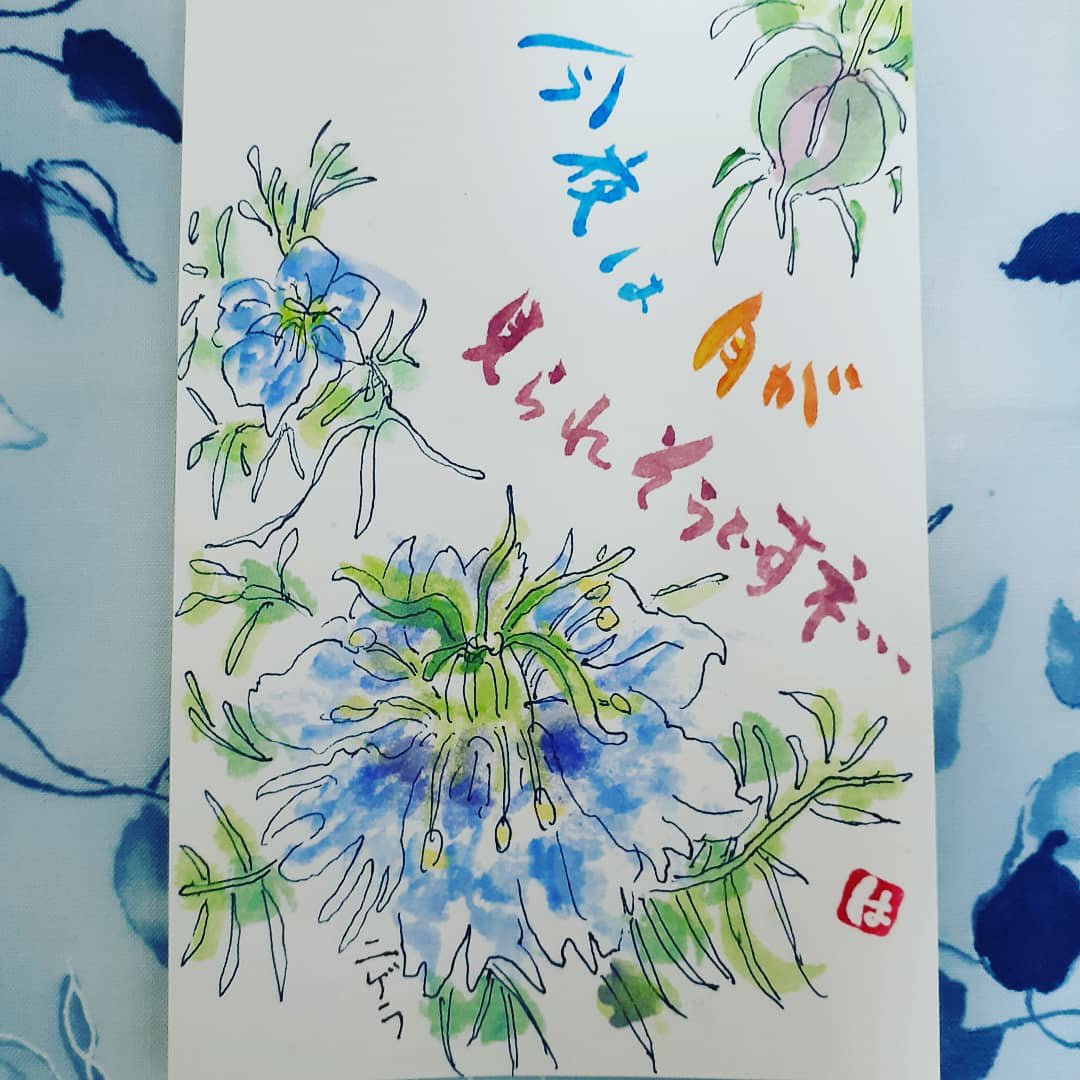 今夜は
月が
見られそうですネ…
ニゲラ
は